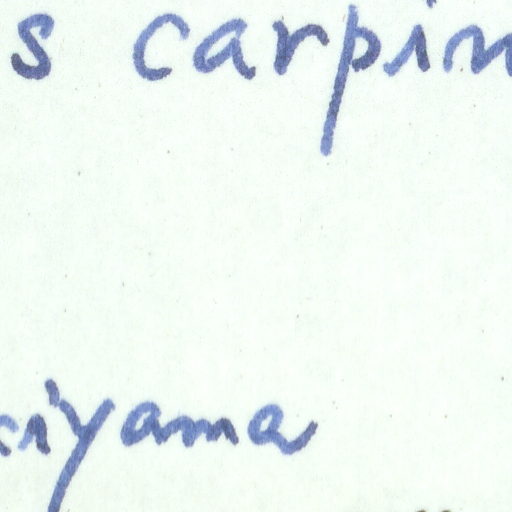 s carpin
kiyama